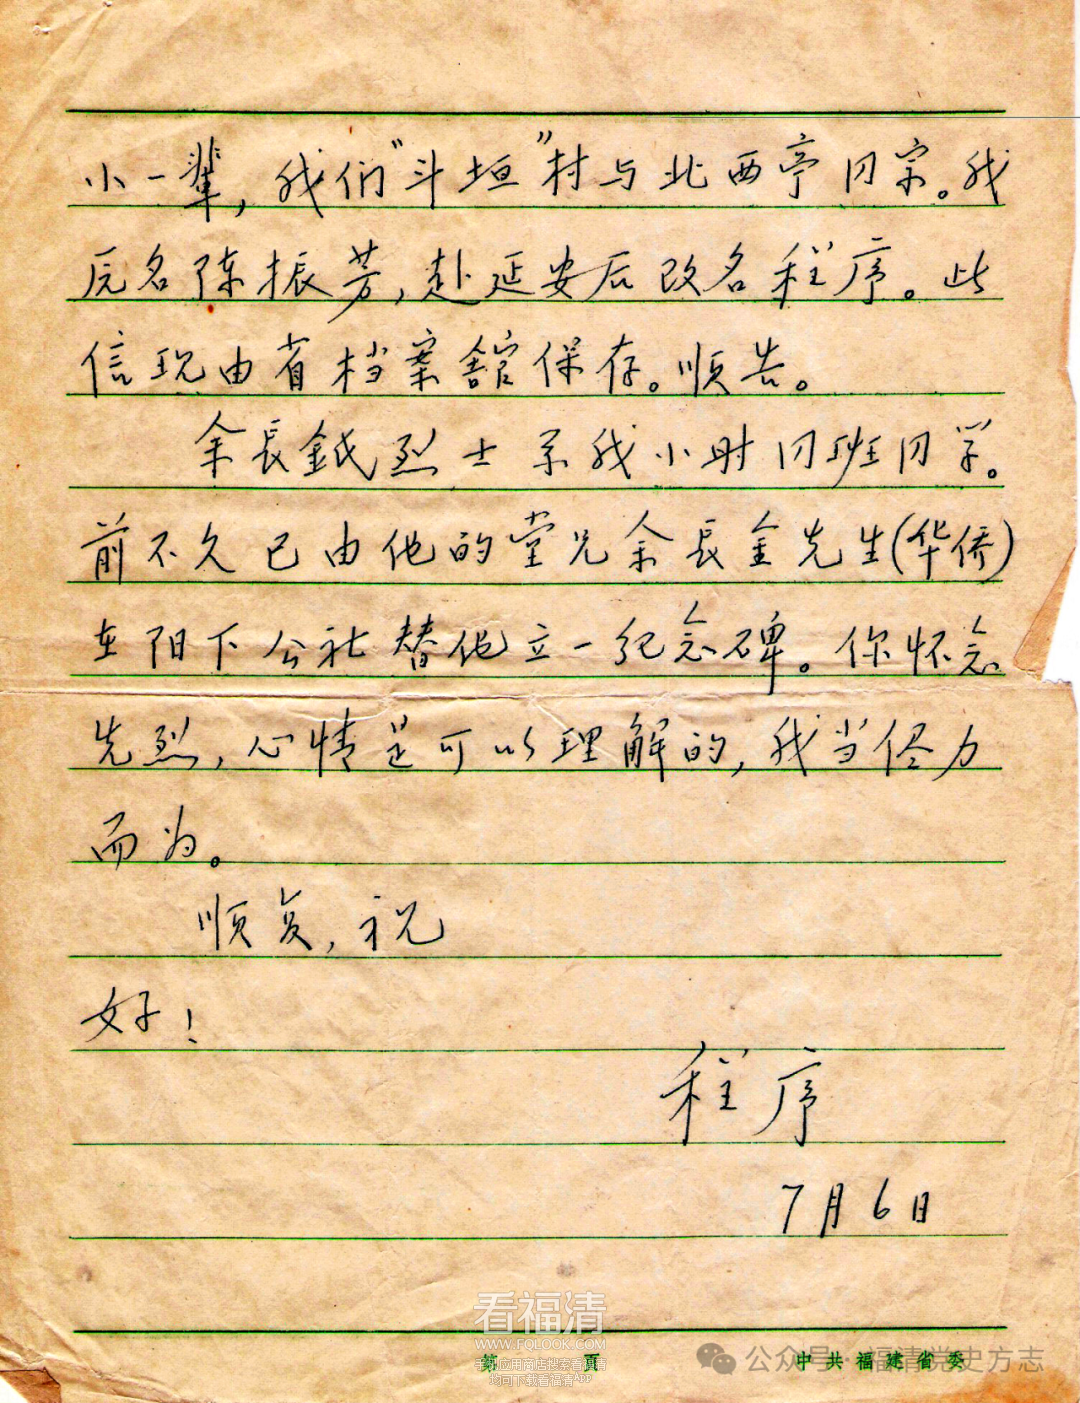 小一辈，我们“斗垣”村与北西亭同宗。我
原名陈振芳，赴延安后改名程序。此
信现由省档案舘保存。顺告。
余長鉞烈士系我小时同班同学。
前不久已由他的堂兄余長金先生(华侨)
在阳下公社替他立一纪念碑。你怀念
先烈，心情是可以理解的，我当尽力
而为。
顺复，祝
好！
程序
7月6日
看福清
WWW.FQLOOK.COM
手机应用商店搜索看福清
均可下载看福清App
第 頁
中共福建省委
公众号·福清党史方志